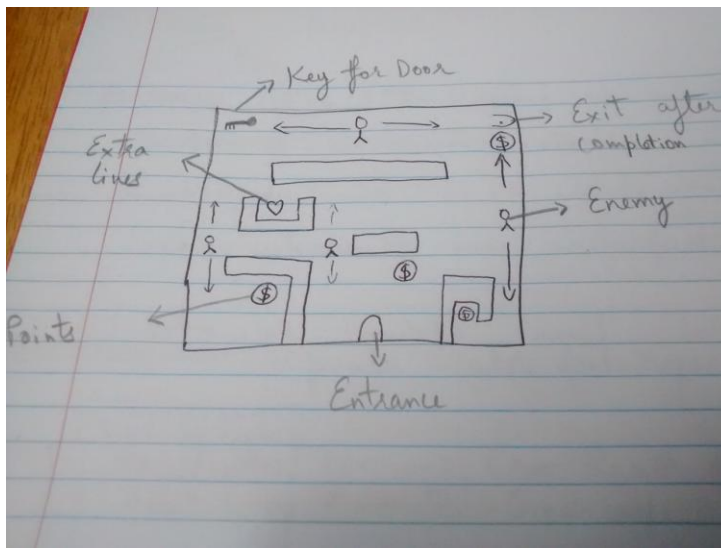 Key for Door
Exit after
completion
Extra
lines
Enemy
$
$
$
$
Points
Entrance